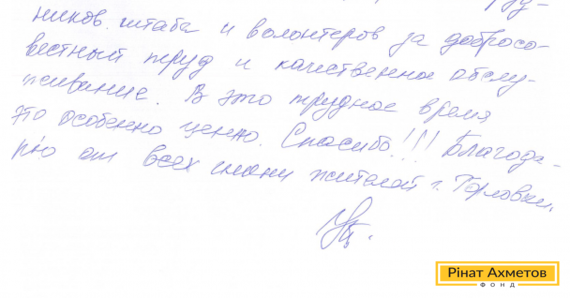 ников штаба и волонтеров за добросо-
вестный труд и качественное обслу-
живание. В это трудное время
это особенно ценно. Спасибо!!! Благода-
рю от всех имени жителей г. Горловки.
Рінат Ахметов
ФОНД